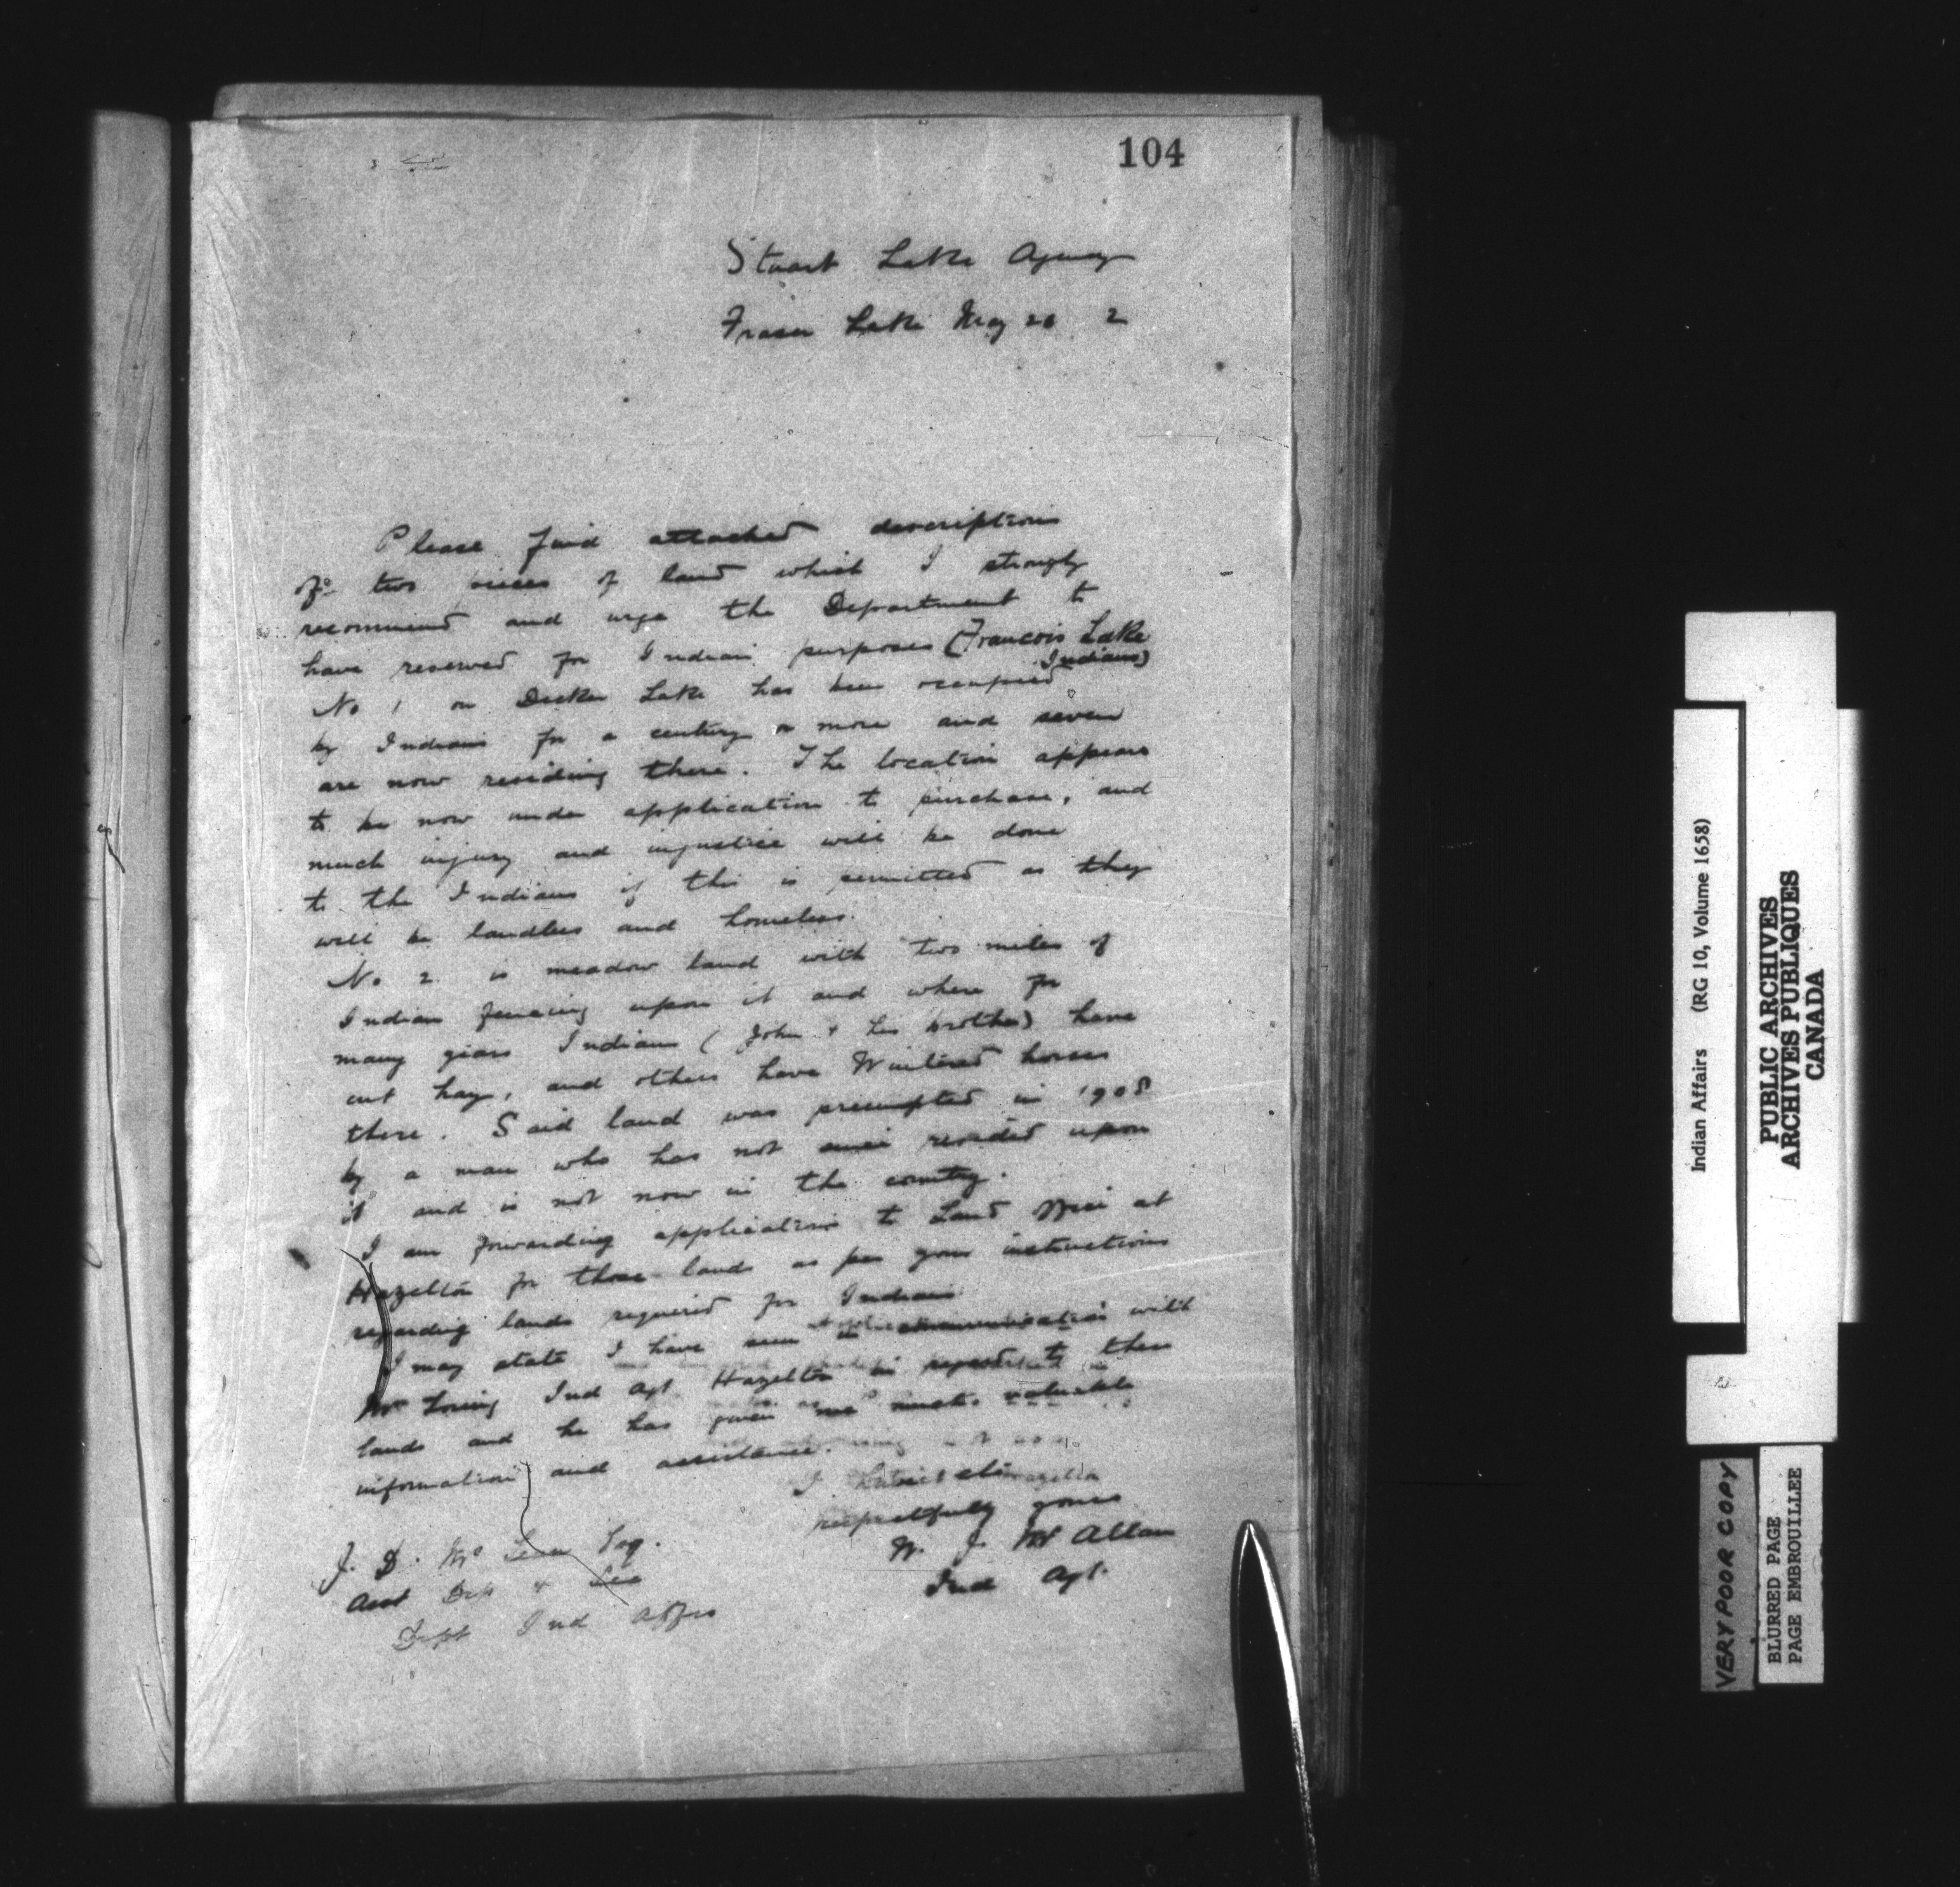 104
Stuart Lake Agency
Fraser Lake May 20 2
Please find attached description
of two pieces of land which I strongly
recommend and urge the Department to
have reserved for Indian purposes (Francois Lake
Indians)
No 1 on Decker Lake has been occupied
by Indians for a century or more and seven
are now residing there. The location appears
to be now under application to purchase, and
much injury and injustice will be done
to the Indians if this is permitted as they
will be landless and homeless.
No 2 is meadow land with two miles of
Indian fencing upon it and where for
many years Indians (John & his brother) have
cut hay, and others have Wintered horses
there. Said land was preempted in 1908
by a man who has not resided upon
it and is not now in the country.
I am forwarding application to Land Office at
Hazelton for those lands as per your instructions
regarding lands required for Indians.
I may state I have been in communication with
Mr Loring Ind Agt. Hazelton in regard to these
lands and he has given me much valuable
information and assistance.
I
respectfully yours
W. J. McAllan
Ind Agt.
J. D. McLean Esq.
Asst Dep & Sec
Dept Ind Affrs
Indian Affairs (RG 10, Volume 1658)
PUBLIC ARCHIVES
ARCHIVES PUBLIQUES
CANADA
VERY POOR COPY
BLURRED PAGE
PAGE EMBROUILLEE